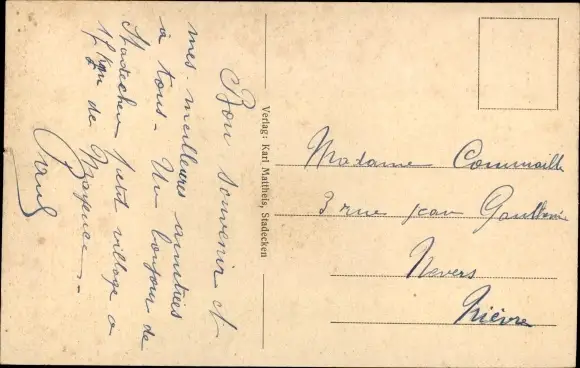 Bon souvenir et
mes meilleures amitiés
à tous. Un bonjour de
Stadecken petit village à
17 km de Mayence.
Paul
Verlag: Karl Mattheis, Stadecken
Madame
3 rue Jean Gautherin
Nevers
Nièvre